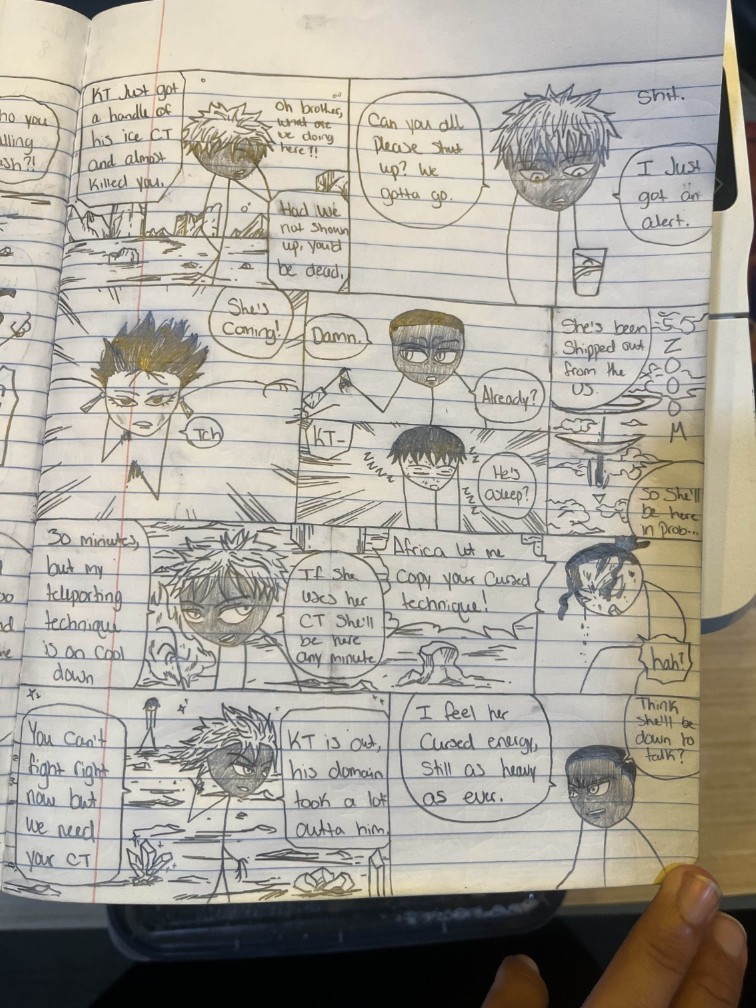 ho you
lling
sh?!
KT Just got
a handle of
his ice CT
and almost
killed you.
Oh brother,
what are
we doing
here!!
Had we
not shown
up, you'd
be dead.
Can you all
please shut
up? We
gotta go.
Shit.
I Just
got an
alert.
She's
Coming!
Tch
Damn.
Already?
KT-
He's
asleep?
She's been
Shipped out
from the
US.
Z
O
O
O
O
M
So She'll
be here
in prob...
30 minutes,
but my
teleporting
technique
is on cool
down
If She
uses her
CT She'll
be here
any minute
Africa let me
Copy your Cursed
technique!
hah?
You can't
fight right
now but
we need
your CT
KT is out,
his domain
took a lot
outta him.
I feel her
Cursed energy,
Still as heavy
as ever.
Think
she'll be
down to
talk?